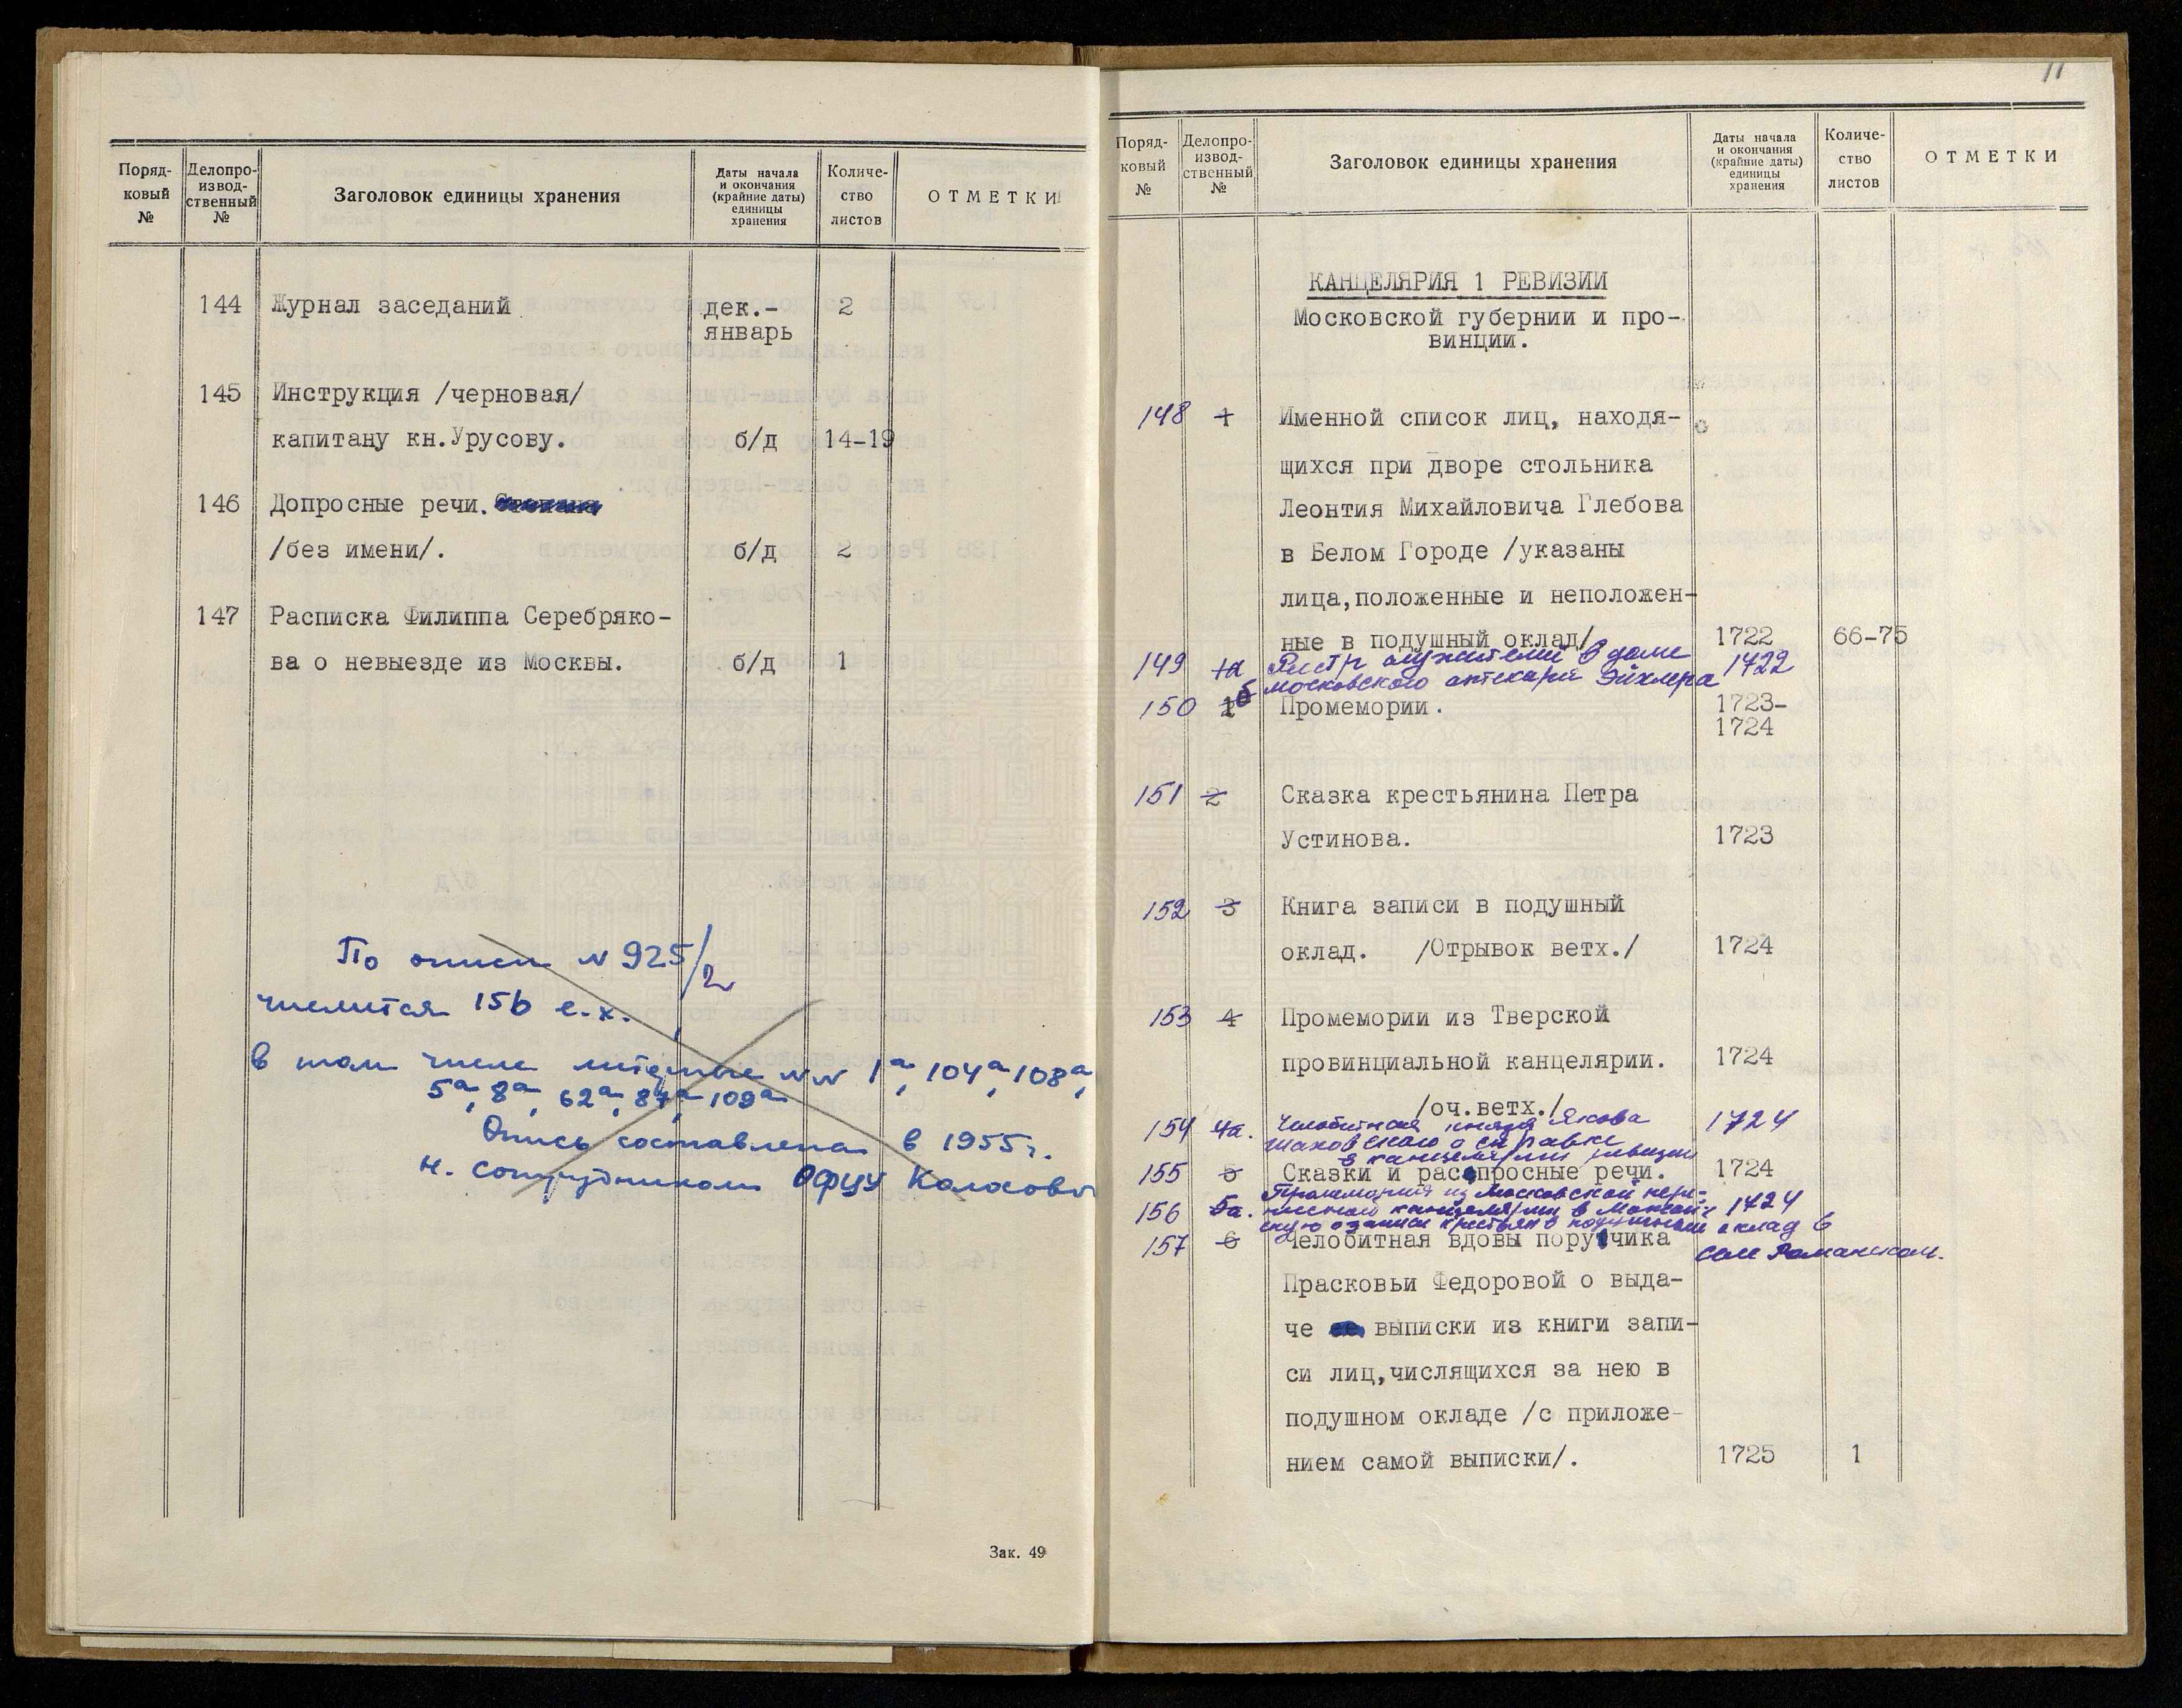 Поряд-
ковый
№
Делопро-
извод-
ственный
№
Заголовок единицы хранения
Даты начала
и окончания
(крайние даты)
единицы
хранения
Количе-
ство
листов
ОТМЕТКИ
144 Журнал заседаний дек.- 2
январь
145 Инструкция /черновая/
капитану кн.Урусову. б/д 14-19
146 Допросные речи.
/без имени/. б/д 2
147 Расписка Филиппа Серебряко-
ва о невыезде из Москвы. б/д 1
По описи № 925/2
числится 156 е.х.
в том числе литерные №№ 1а, 104а, 108а,
5а, 8а, 62а, 87а, 109а
Опись составлена в 1955г.
н. сотрудником ОФЦУ
Зак. 49
11
Поряд-
ковый
№
Делопро-
извод-
ственный
№
Заголовок единицы хранения
Даты начала
и окончания
(крайние даты)
единицы
хранения
Количе-
ство
листов
ОТМЕТКИ
КАНЦЕЛЯРИЯ 1 РЕВИЗИИ
Московской губернии и про-
винции.
148 1 Именной список лиц, находя-
щихся при дворе стольника
Леонтия Михайловича Глебова
в Белом Городе /указаны
лица,положенные и неположен-
ные в подушный оклад/ 1722 66-75
149 1а Реестр служителей в доме 1722
московского аптекаря Эйхлера
150 1б Промемории. 1723-
1724
151 2 Сказка крестьянина Петра
Устинова. 1723
152 3 Книга записи в подушный
оклад. /Отрывок ветх./ 1724
153 4 Промемории из Тверской
провинциальной канцелярии. 1724
/оч.ветх./
154 4а. Челобитная князя Якова 1724
Шаховского о справке
в канцелярии ревизии
155 5 Сказки и распросные речи. 1724
156 5а. Промемория из Московской пере-
писной канцелярии в 1724
о записи крестьян в подушный оклад в
селе Романовском.
157 6 Челобитная вдовы поручика
Прасковьи Федоровой о выда-
че выписки из книги запи-
си лиц,числящихся за нею в
подушном окладе /с приложе-
нием самой выписки/. 1725 1